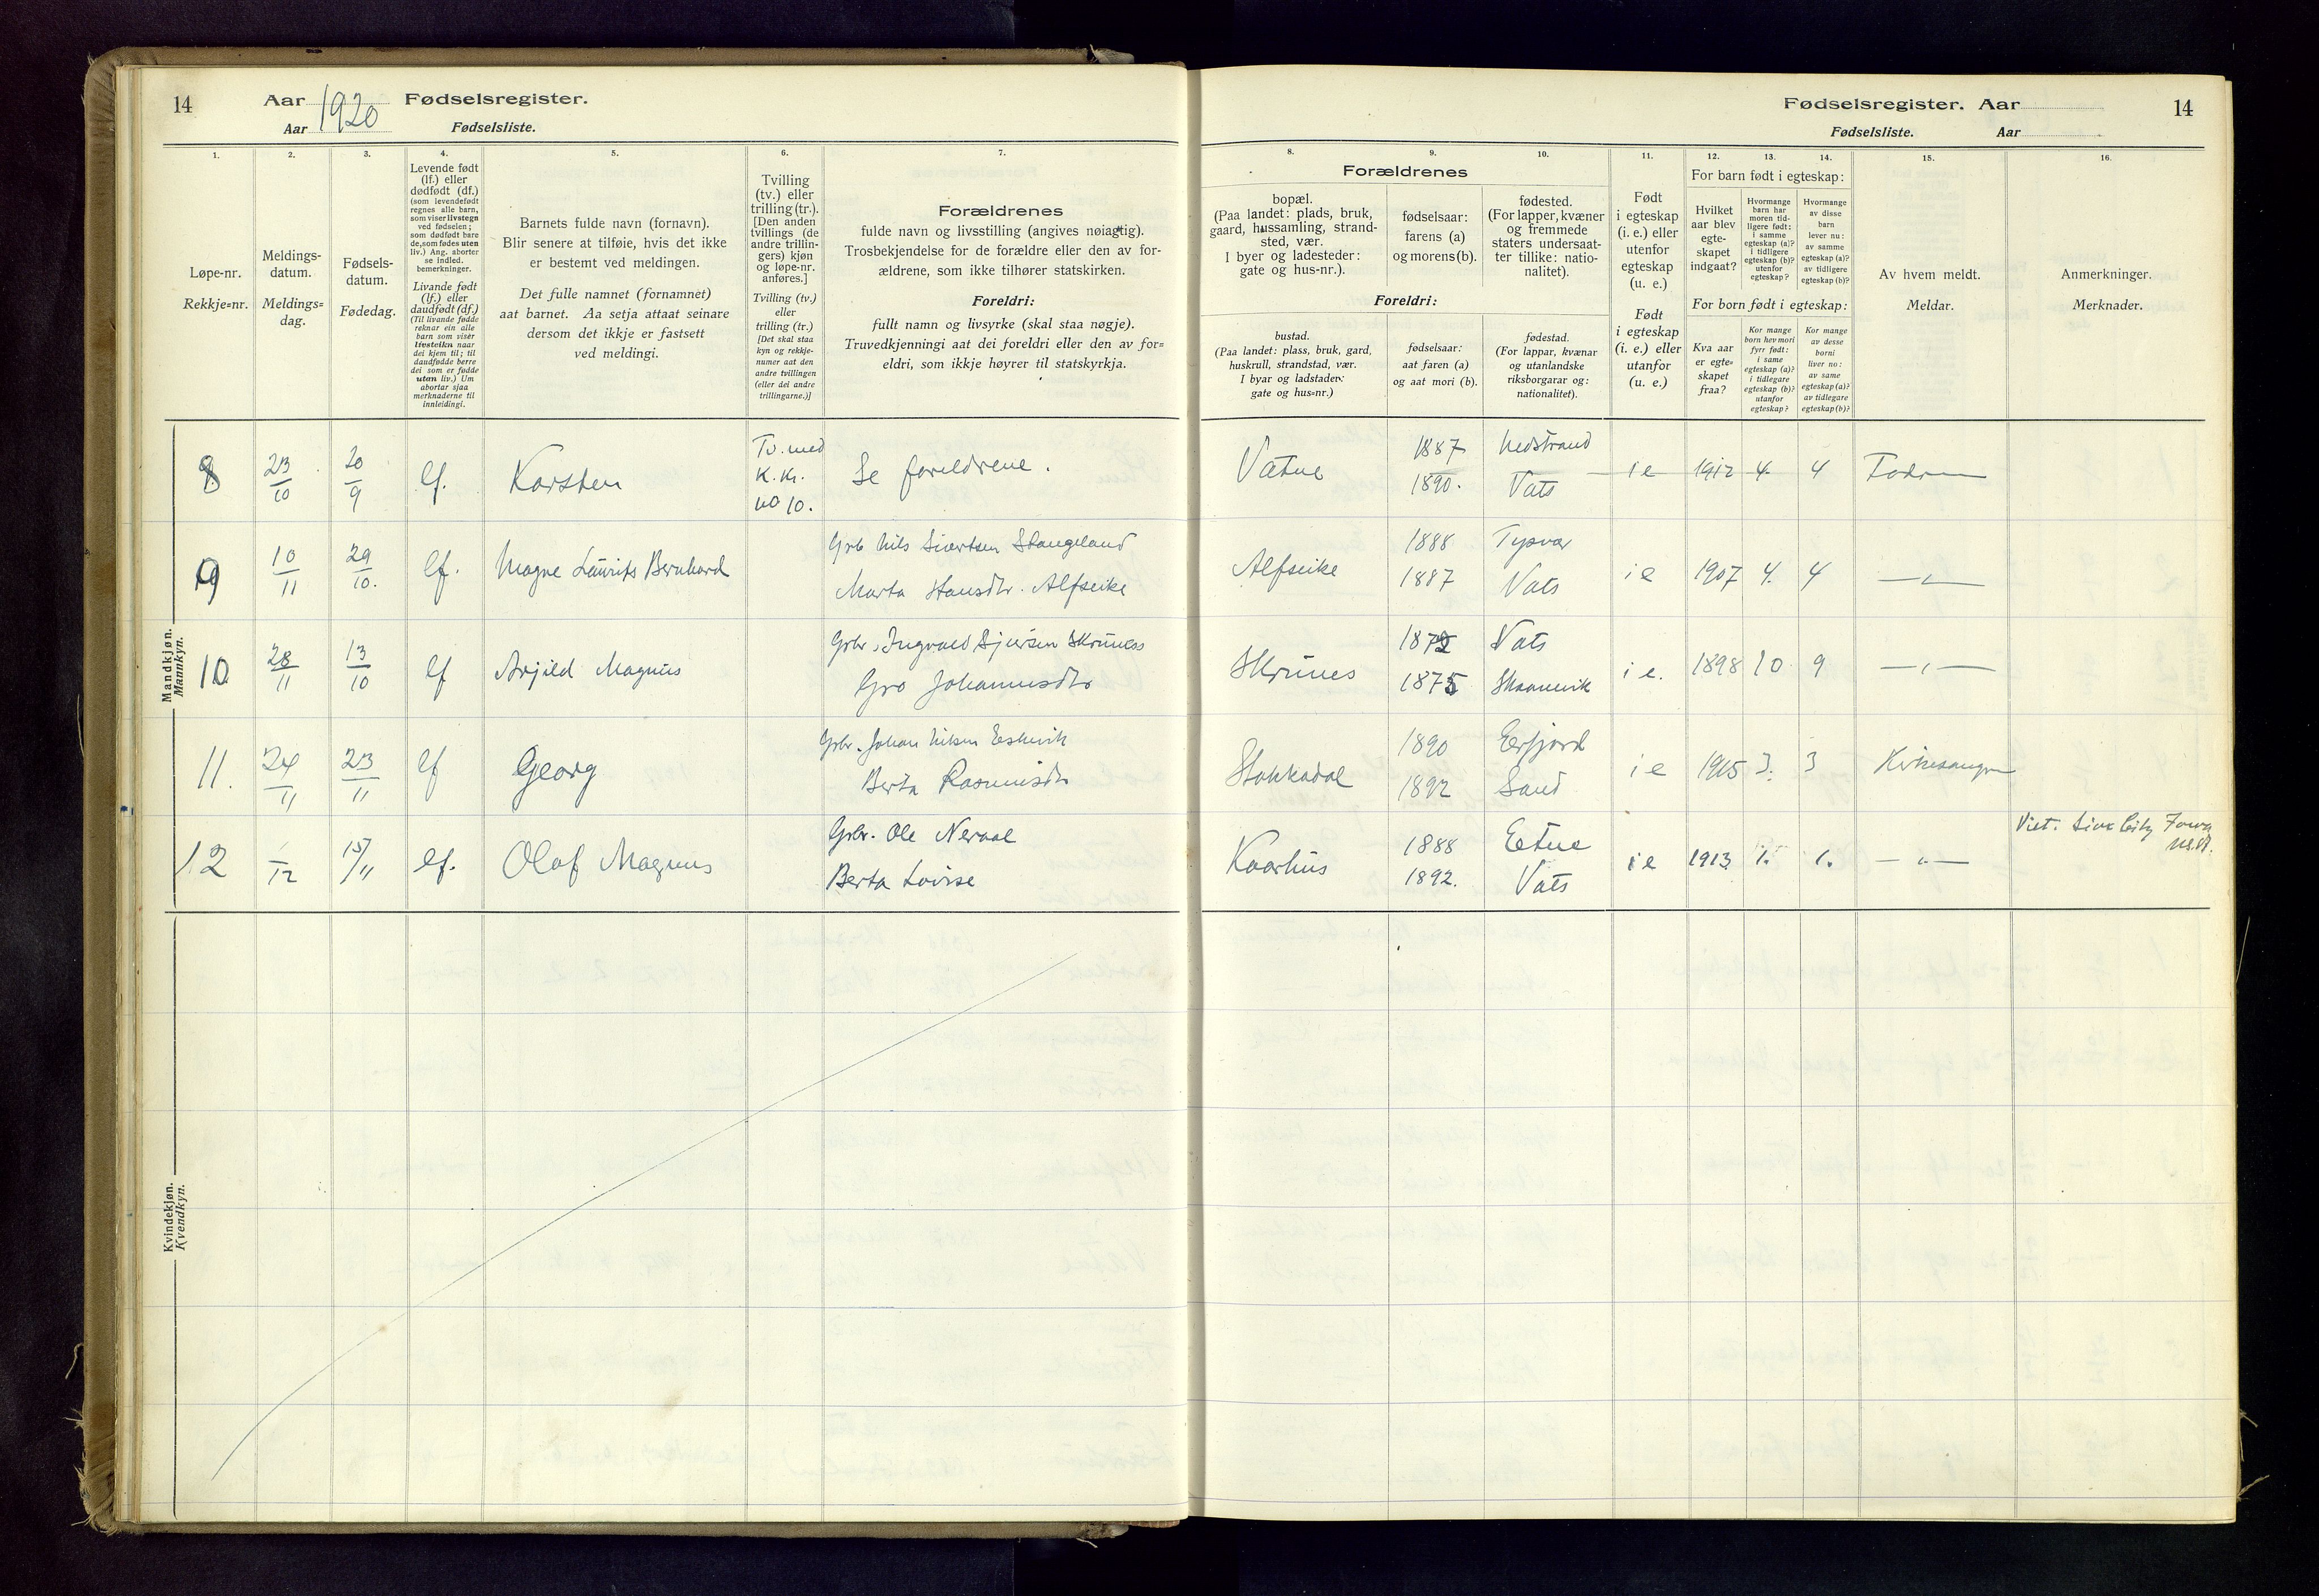 14
Aar 1920 Fødselsregister.
Aar Fødselsliste.
Fødselsregister. Aar
14
Fødselsliste. Aar
1.
Løpe-nr.
Rekkje=nr.
2.
Meldings-
datum.
Meldings=
dag.
3.
Fødsels-
datum.
Fødedag.
4.
Levende født
(lf.) eller
dødfødt (df.)
(som levendefødt
regnes alle barn,
som viser livstegn
ved fødselen;
som dødfødt bare
de, som fødes uten
liv.) Ang. aborter
se indled.
bemerkninger.
Livande født
(lf.) eller
daudfødt (df.)
(Til livande fødde
reknar ein alle
barn som viser
livsteikn naar
dei kjem til; til
daudfødde berre
dei som er fødde
utan liv.) Um
abortar sjaa
merknaderne til
innleidingi.
5.
Barnets fulde navn (fornavn).
Blir senere at tilføie, hvis det ikke
er bestemt ved meldingen.
Det fulle namnet (fornamnet)
aat barnet. Aa setja attaat seinare
dersom det ikkje er fastsett
ved meldingi.
6.
Tvilling
(tv.) eller
trilling (tr.).
[Den anden
tvillings (de
andre trillin-
gers) kjøn
og løpe-nr.
anføres.]
Tvilling (tv.)
eller
trilling (tr.)
[Det skal staa
kyn og rekkje-
numer aat den
andre tvillingen
(eller dei andre
trillingarne.)]
7.
Forældrenes
fulde navn og livsstilling (angives nøiagtig).
Trosbekjendelse for de forældre eller den av for-
ældrene, som ikke tilhører statskirken.
Foreldri:
fullt namn og livsyrke (skal staa nøgje).
Truvedkjenningi aat dei foreldri eller den av for=
eldri, som ikkje høyrer til statskyrkja.
Forældrenes
8.
bopæl.
(Paa landet: plads, bruk,
gaard, hussamling, strand-
sted, vær.
I byer og ladesteder:
gate og hus-nr.).
9.
fødselsaar:
farens (a)
og morens (b).
10.
fødested.
(For lapper, kvæner
og fremmede
staters undersaat-
ter tillike: natio-
nalitet).
Foreldri:
bustad.
(Paa landet: plass, bruk, gard,
huskrull, strandstad, vær.
I byar og ladstader:
gate og hus=nr.)
fødselsaar:
aat faren (a)
og aat mori (b).
fødestad.
(For lappar, kvænar
og utanlandske
riksborgarar og:
nationalitet).
11.
Født
i egteskap
(i. e.) eller
utenfor
egteskap
(u. e.)
Født
i egteskap
(i. e.) eller
utanfor
(u. e.)
For barn født i egteskap:
12.
Hvilket
aar blev
egte-
skapet
indgaat?
13.
Hvormange
barn har
moren tid-
ligere født:
i samme
egteskap (a)?
i tidligere
egteskap (b)?
utenfor
egteskap?
14.
Hvormange
av disse
barn
lever nu:
av samme
egteskap (a)?
av tidligere
egteskap (b)?
For born født i egteskap:
Kva aar
er egte-
skapet
fraa?
Kor mange
born hev mori
fyrr født:
i same
egteskap (a)?
i tidlegare
egteskap (b)?
utanfor
egteskap?
Kor mange
av desse
borni
liver no:
av same
egteskap (a)?
av tidlegare
egteskap (b)?
15.
Av hvem meldt.
Meldar.
16.
Anmerkninger.
Merknader.
Mandkjøn.
Mannkyn.
8 23/10 20/9 lf. Karsten Tv. med K. Kr. no 10. Se foreldrene. Vatne 1887 1890. Nedstrand Vats i e 1912 4. 4
9 10/11 29/10. lf. Magne Laurits Bernhard Grb Nils Sivertsen Stangeland
Marta Hansdtr. Alfseike Alfseike 1888 1887 Tysvær Vats i e 1907 4. 4 — " —
10 28/11 13/10 lf Arjild Magnus Grbr. Ingvald Sjursen Skrunes
Gro Johannesdtr Skrunes 1872 1875 Vats Skaanevik i e. 1898 10 9 — " —
11. 24/11 23/11 lf Georg Grbr. Johan Nilsen Eskevik
Berta Rasmusdtr Stakkadal 1890 1892 Erfjord Sand i e 1915 3. 3 Kirkesanger
12 1/12 15/11 lf. Olaf Magnus Grbr. Ole Neraal
Berta Lovise Kaarhus 1888 1892. Etne Vats i e 1913 1. 1. — " —
City Iowa
U.S.A.
Kvindekjøn.
Kvendkyn.